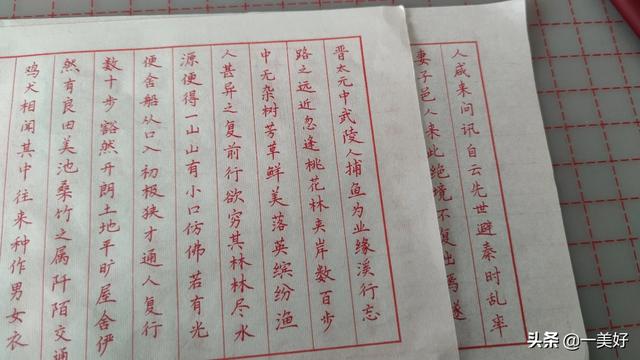 晋太元中武陵人捕鱼为业缘溪行志
路之远近忽逢桃花林夹岸数百步
中无杂树芳草鲜美落英缤纷渔
人甚异之复前行欲穷其林林尽水
源便得一山山有小口仿佛若有光
便舍船从口入初极狭才通人复行
数十步豁然开朗土地平旷屋舍伊
然有良田美池桑竹之属阡陌交通
鸡犬相闻其中往来种作男女衣
人咸来问讯自云先世避秦时乱率
妻子邑人来此绝境不复出焉遂
头条 @一美好